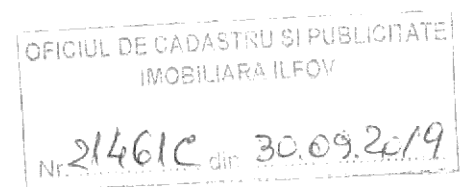 OFICIUL DE CADASTRU SI PUBLICITATE
IMOBILIARA ILFOV
Nr. 21461C din 30.09.2019